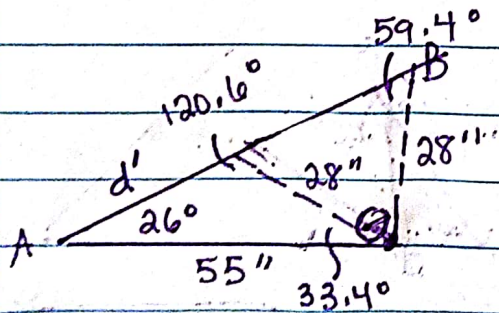 59.4°
B
120.6°
d'
28"
28"
26°
A
55"
33.4°